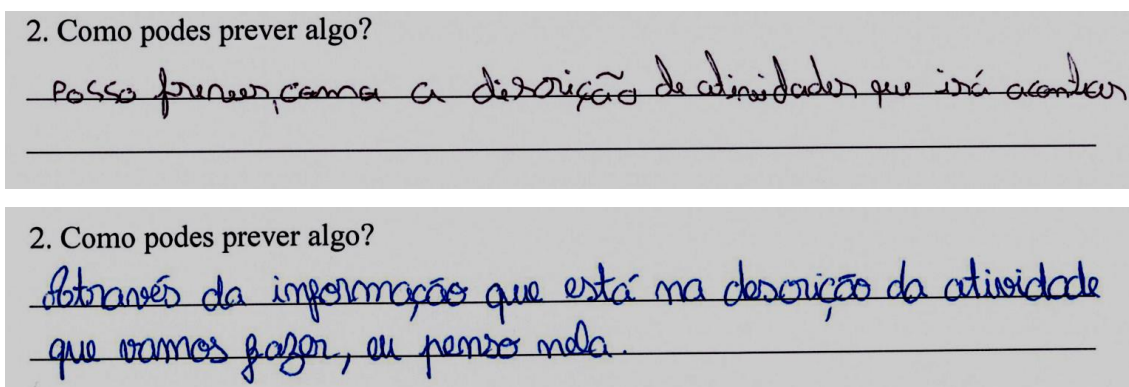 2. Como podes prever algo?
Posso prever, como a discrição de atividades que irá acontecer
2. Como podes prever algo?
Através da informação que está na descrição da atividade
que vamos fazer, eu penso nela.